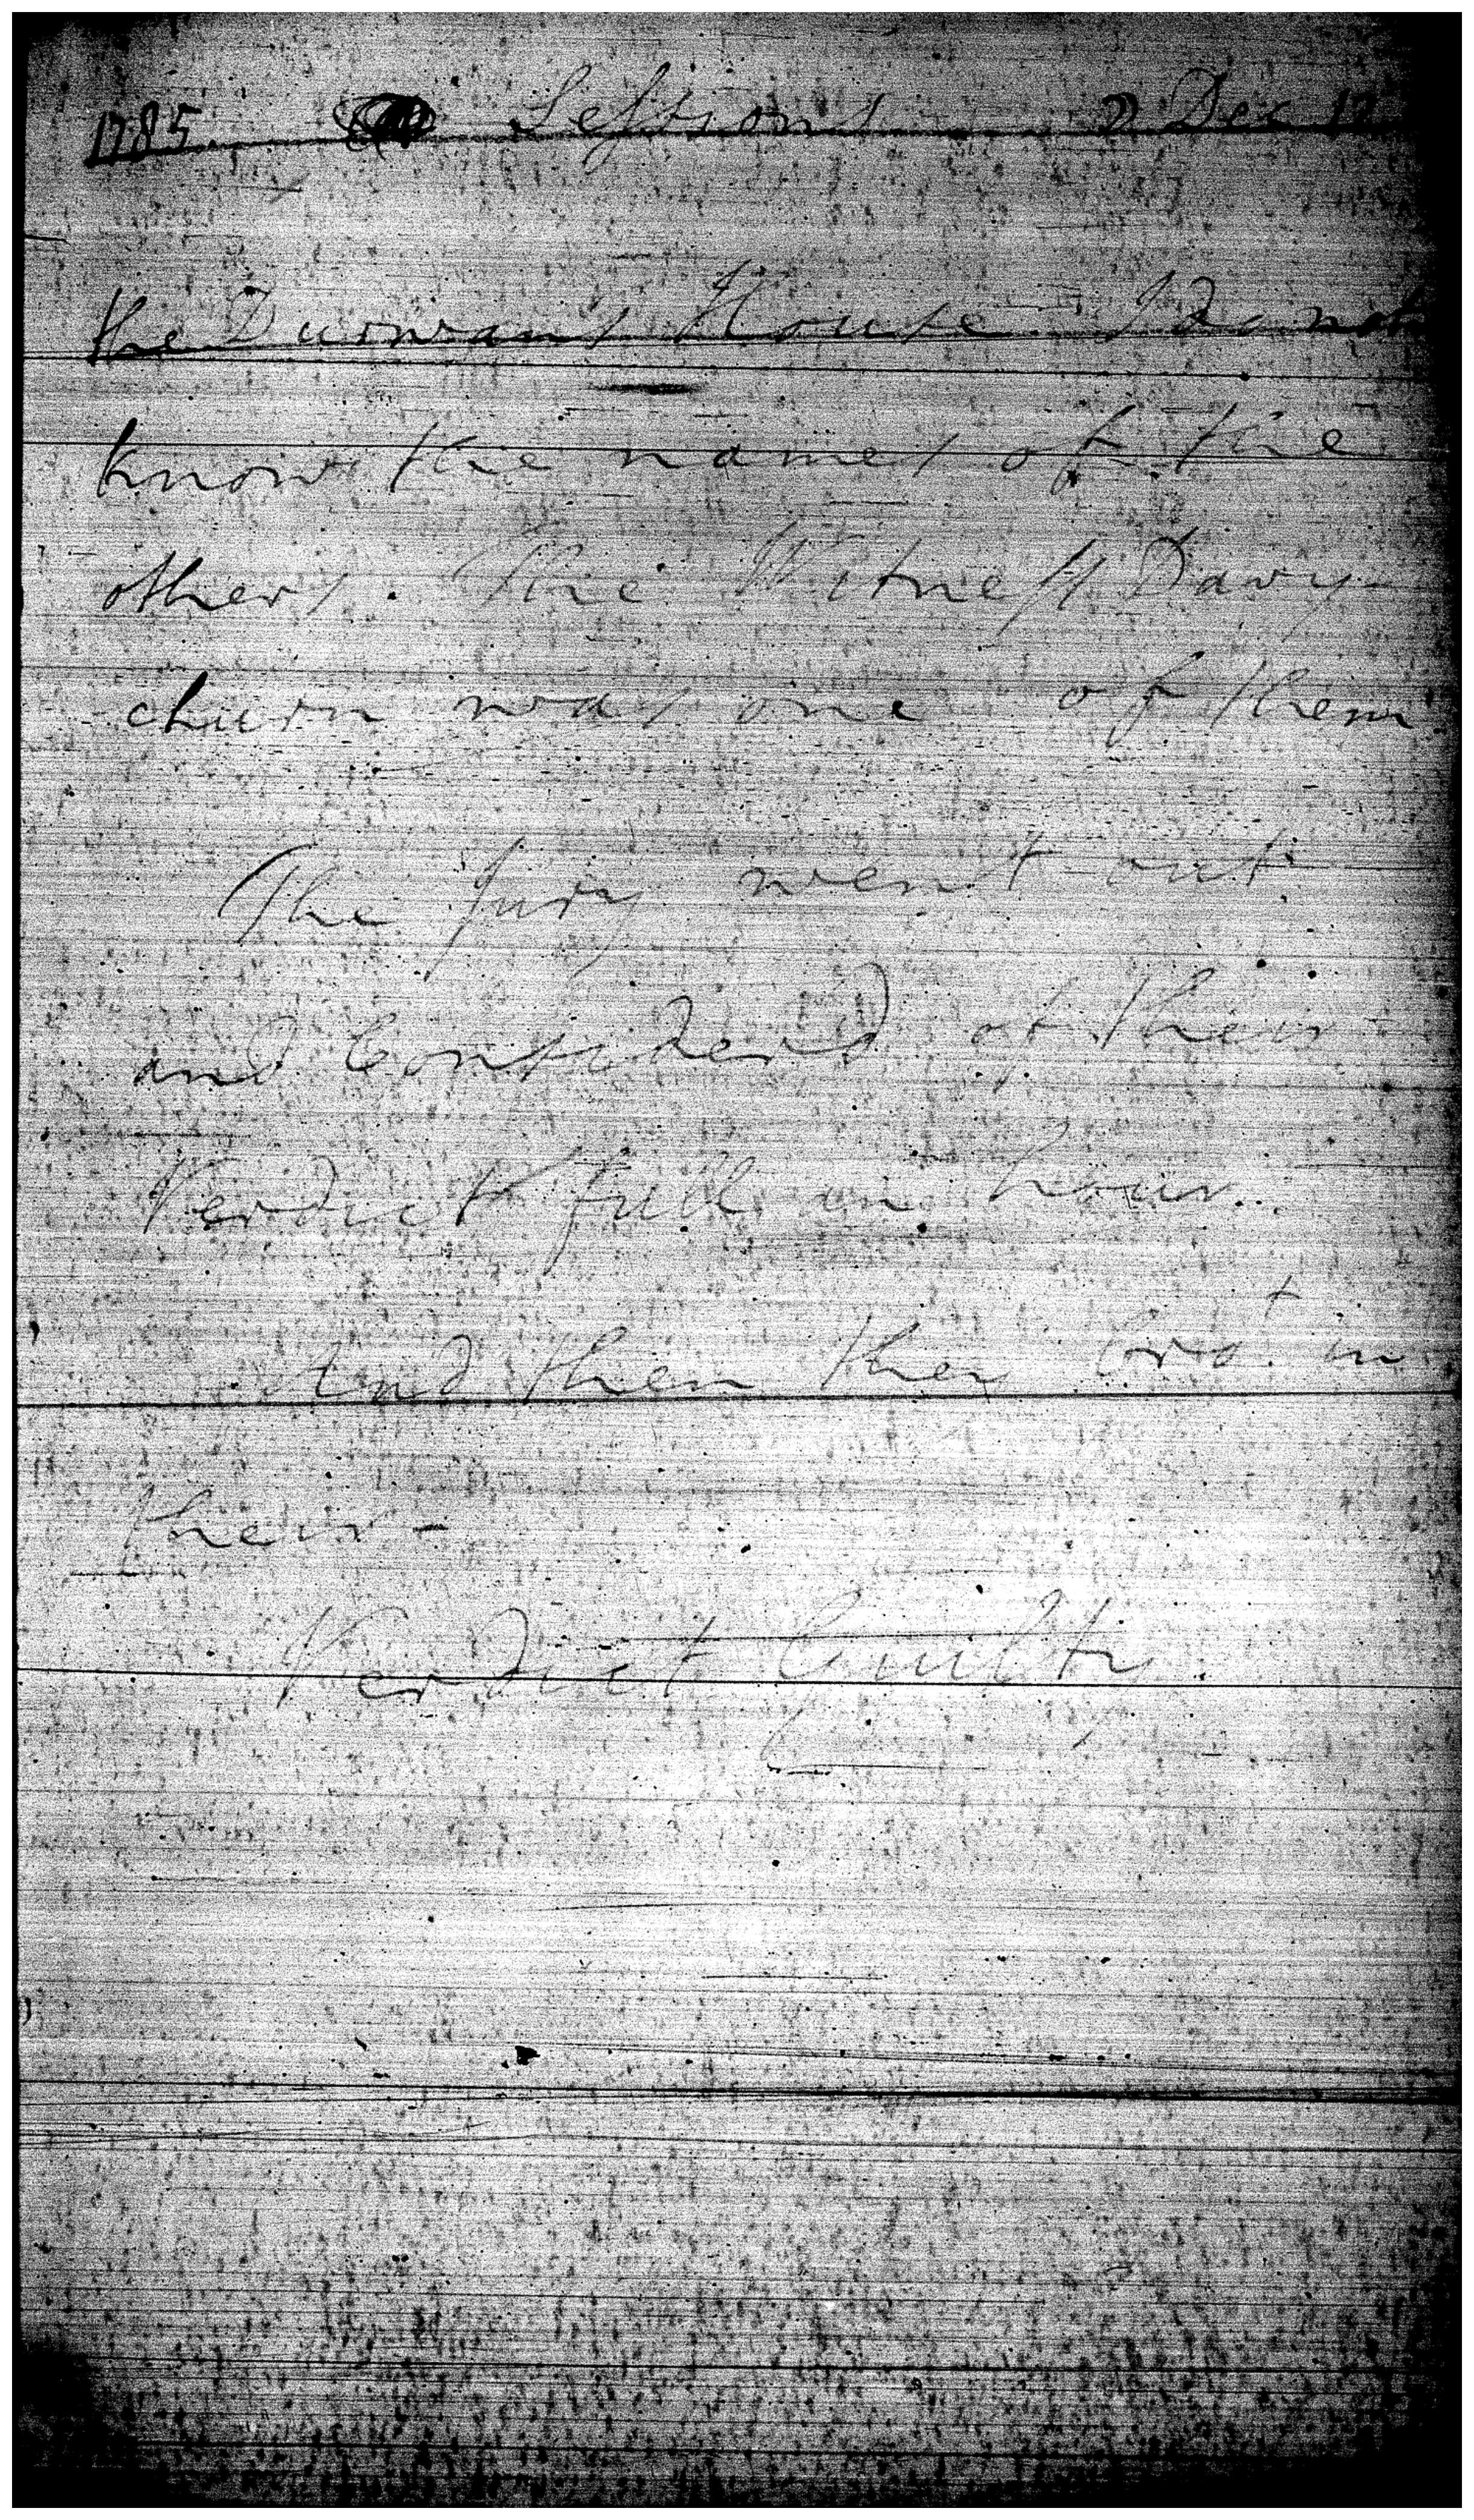 1785. Sessions Dec 12
the Durwans House I do not
know the names of the
others. The Witness Davy
churn was one of them
The Jury went out
and Considered of their
Verdict full an hour.
And then they bro.t in
their -
Verdict Guilty